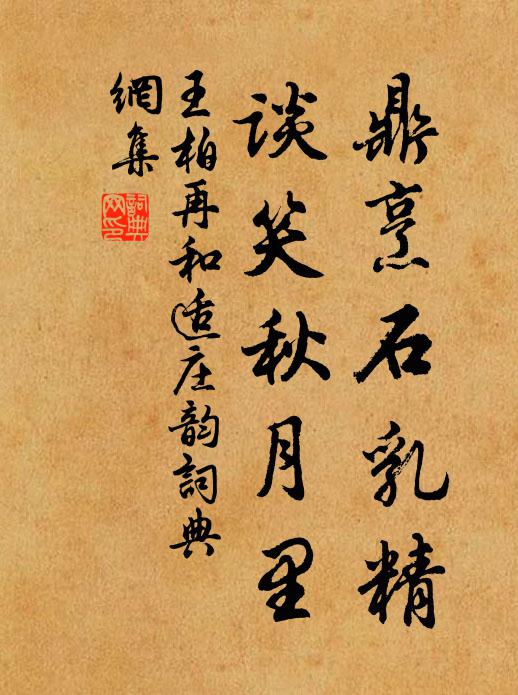 鼎烹石乳精
谈笑秋月里
王柏再和适庄韵詞典
網集
詞典網印